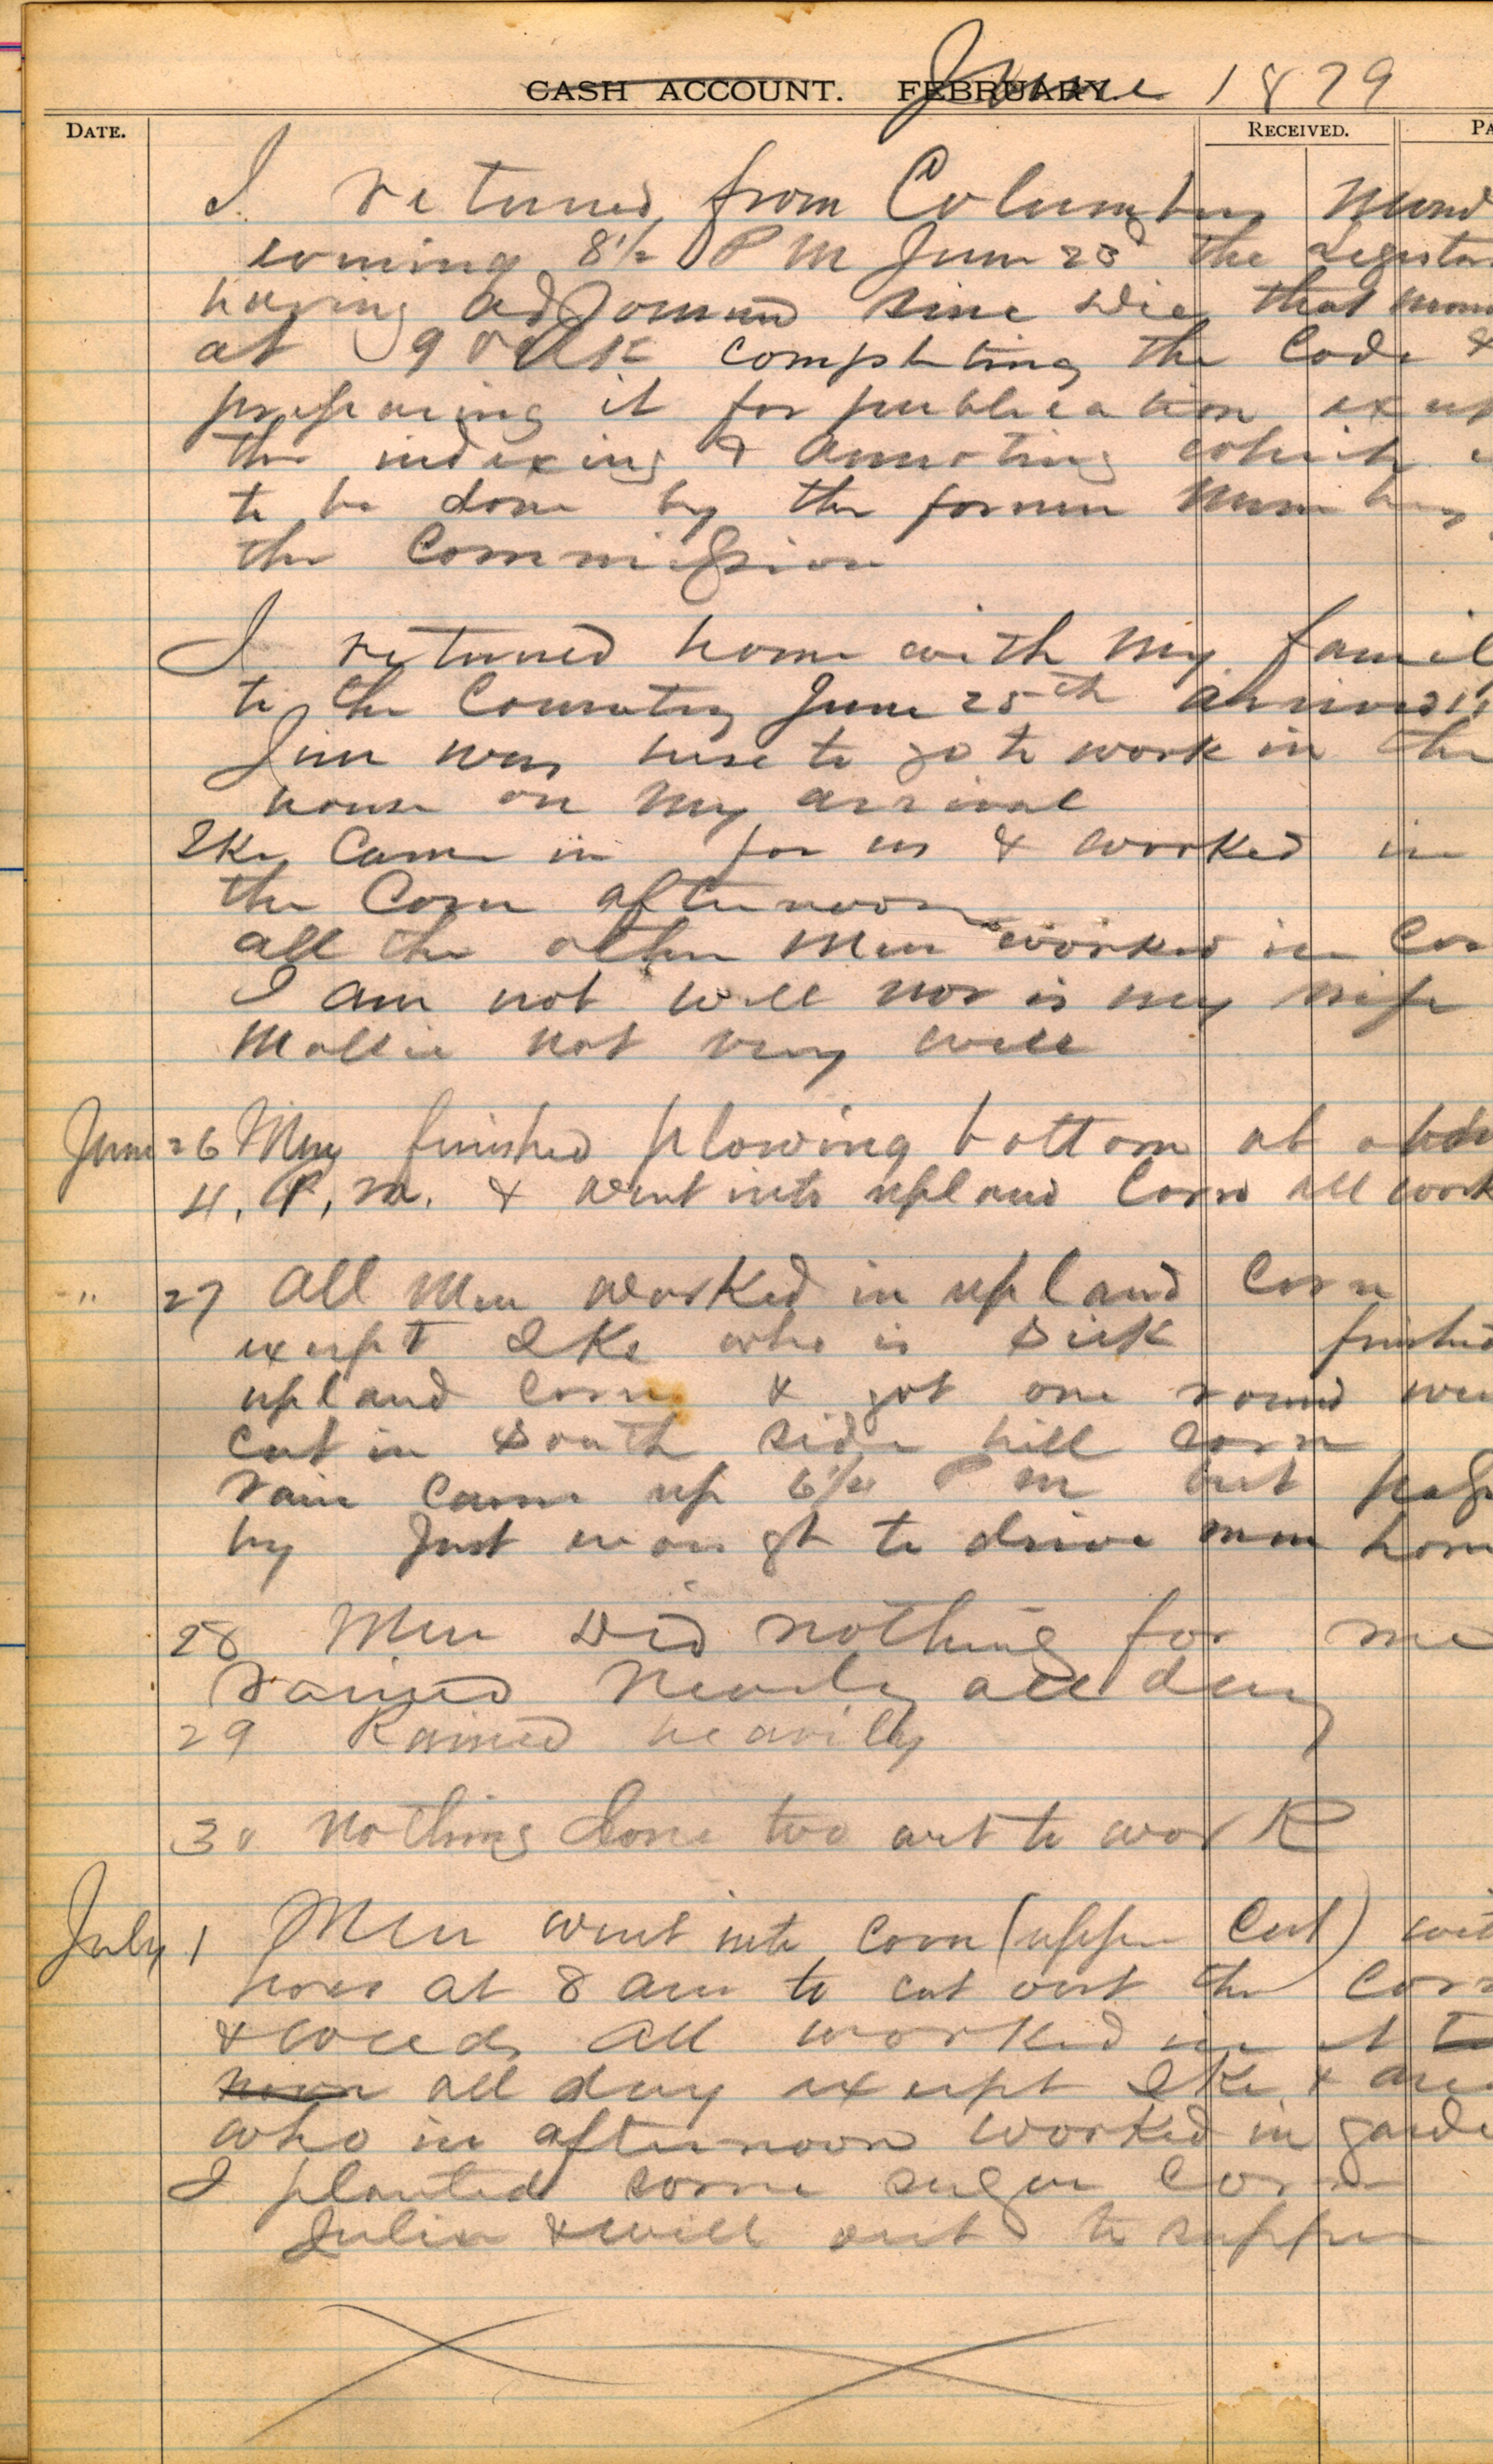 CASH ACCOUNT. FEBRUARY. June 1879
DATE. RECEIVED. PA
I returned from Columbus Mond
evening 8 1/2 P M June 23 the Legistat
having adjourned sine die that morn
at 9 oclk completing the Code &
preparing it for publication exept
the indexing & annoting which is
to be done by the former members
the Commission
I returned home with my famil
to the Country June 25th arrived 11
Jim was here to go to work in the
house on my arrival
Ike came in for us & worked in
the Corn afternoon
all the other men worked in Cor
I am not well nor is my wife
Mollie not very well
June 26 Men finished plowing bottom at abou
4. P. M. & went into upland Corn all work
" 27 All men worked in upland Corn
exept Ike who is sick finished
upland corn & got one round
cut in South side hill corn
rain came up 6 1/2 P m but pass
by just enough to drive men hom
28 Men did nothing for me
rained nearly all day
29 Rained heavilly
30 Nothing done two wet to work
July 1 Men went into corn (upper Cut) wit
hoes at 8 am to cut out the Corn
& weeds all worked in it to
noon all day except Ike &
who in afternoon worked in garde
I planted some sugar Corn
Julia & Will out to supper